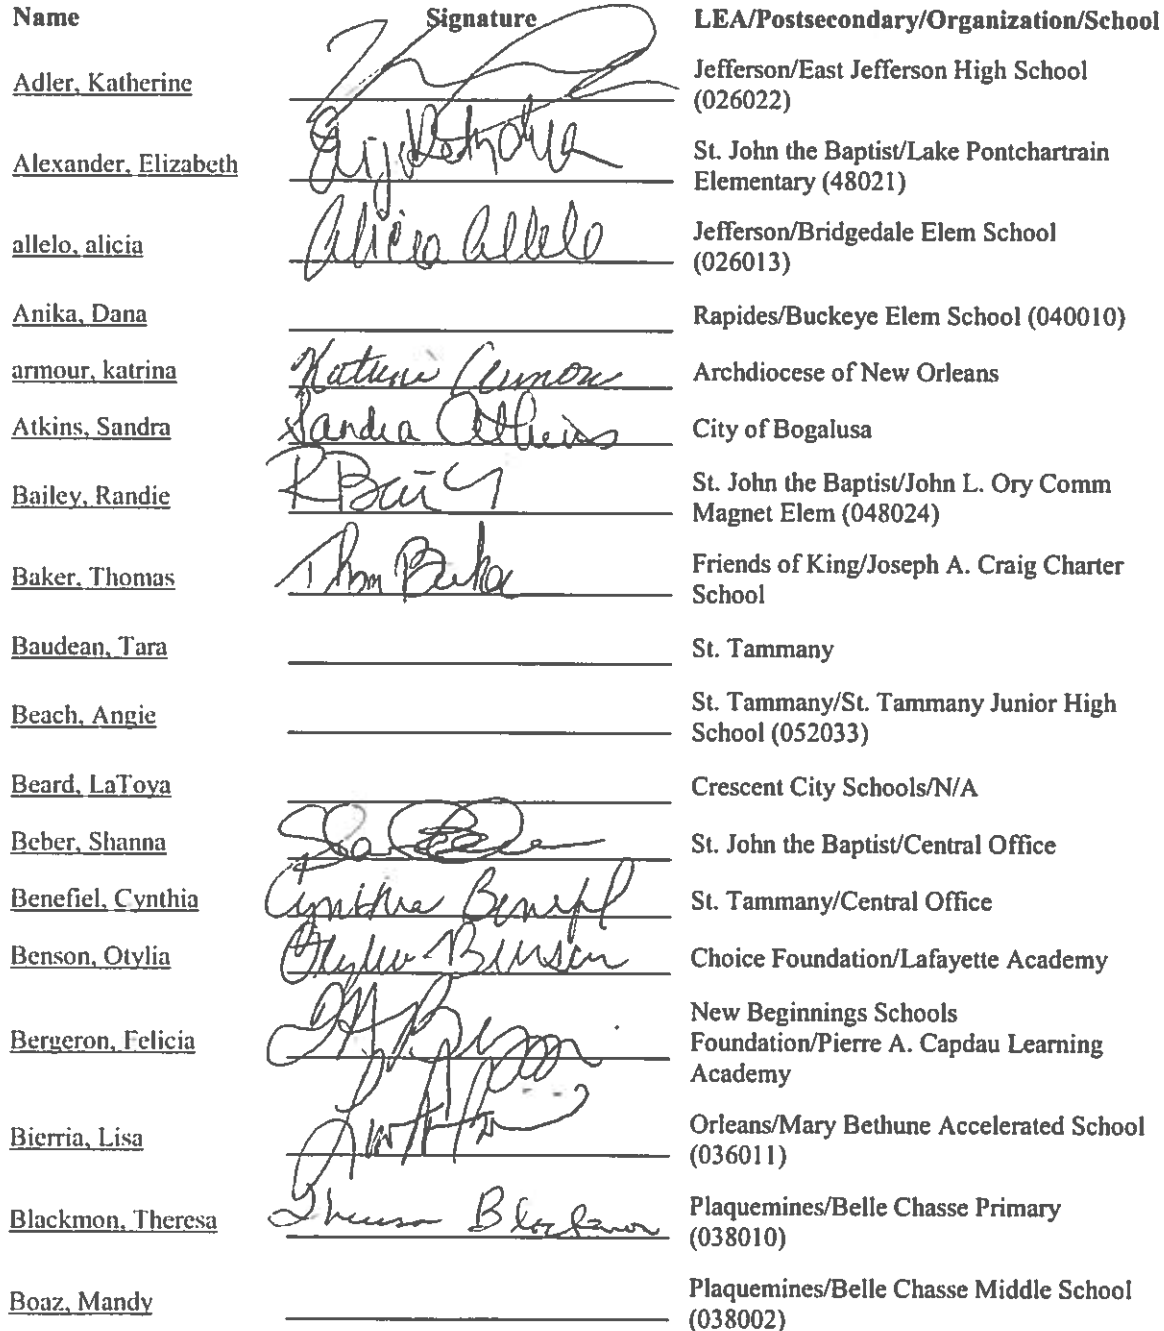 Name Signature LEA/Postsecondary/Organization/School
Adler, Katherine Jefferson/East Jefferson High School
(026022)
Alexander, Elizabeth St. John the Baptist/Lake Pontchartrain
Elementary (48021)
allelo, alicia Alicia Allelo Jefferson/Bridgedale Elem School
(026013)
Anika, Dana Rapides/Buckeye Elem School (040010)
armour, katrina Katrina Armour Archdiocese of New Orleans
Atkins, Sandra Sandra Atkins City of Bogalusa
Bailey, Randie St. John the Baptist/John L. Ory Comm
Magnet Elem (048024)
Baker, Thomas Thom Baker Friends of King/Joseph A. Craig Charter
School
Baudean, Tara St. Tammany
Beach, Angie St. Tammany/St. Tammany Junior High
School (052033)
Beard, LaToya Crescent City Schools/N/A
Beber, Shanna St. John the Baptist/Central Office
Benefiel, Cynthia Cynthia Benefiel St. Tammany/Central Office
Benson, Otylia Otylia Benson Choice Foundation/Lafayette Academy
New Beginnings Schools
Bergeron, Felicia Foundation/Pierre A. Capdau Learning
Academy
Bierria, Lisa Orleans/Mary Bethune Accelerated School
(036011)
Blackmon, Theresa Theresa Blackmon Plaquemines/Belle Chasse Primary
(038010)
Boaz, Mandy Plaquemines/Belle Chasse Middle School
(038002)